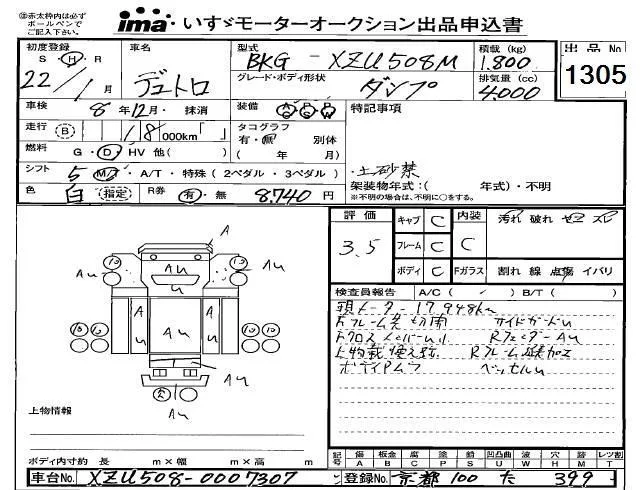 ※赤太枠内は必ず
ボールペンで
ご記入下さい。
ima いすゞモーターオークション出品申込書
初度登録 S・H・R 22/1月
車名 デュトロ
型式 BKG - XZU508M
積載(kg) 1.800
出品No 1305
グレード・ボディ形状 ダンプ
排気量(cc) 4.000
車検 8年12月・抹消
装備
特記事項
走行 B 18,000km「 」
タコグラフ 有・無 別体
( 年 月)
燃料 G・D・HV 他( )
シフト 5 M/・A/T・特殊(2ペダル・3ペダル)
・土砂禁
架装物年式:( 年式)・不明
※不明の場合は、不明に○をする。
色 白 指定 R券 有・無 8.740円
評価 3.5
キャブ C
フレーム C
ボディ C
内装 C
Fガラス
汚れ 破れ ズレ
割れ 線 点傷 イバリ
検査員報告 A/C( ) B/T( )
現メーター 17948km
Fフレーム先切開 サイドガードU
Fクロスメンバー Rフェンダー AU
上物載使え跡 Rフレーム跡加工
ボディPムラ ベッセルU
A
AU
AU
AU
AU
AU
AU
AU
AU
上物情報
ボディ内寸約 長 m×幅 m×高 m
記号 傷 A 板金 B 腐 C 塗 P 錆 S 凹凸曲 U 波 W 穴 H 跡 M レツ割 T
車台No. XZU508-0007307
登録番号 京都 100 た 399